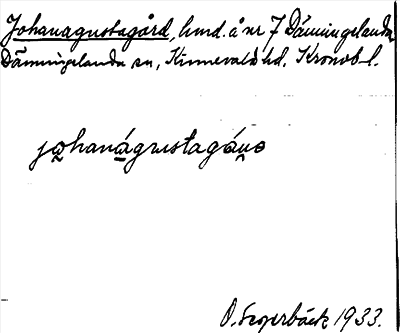 Johanagustagård, lund. å nr 7 Dänningelanda
Dänningelanda sn, Kinnevalds hd. Kronob. l.
johanágustagá
1933.